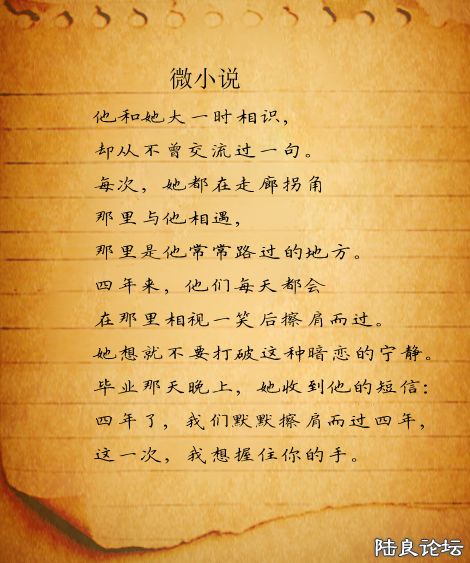 微小说
他和她大一时相识，
却从不曾交流过一句。
每次，她都在走廊拐角
那里与他相遇，
那里是他常常路过的地方。
四年来，他们每天都会
在那里相视一笑后擦肩而过。
她想就不要打破这种暗恋的宁静。
毕业那天晚上，她收到他的短信：
四年了，我们默默擦肩而过四年，
这一次，我想握住你的手。
陆良论坛